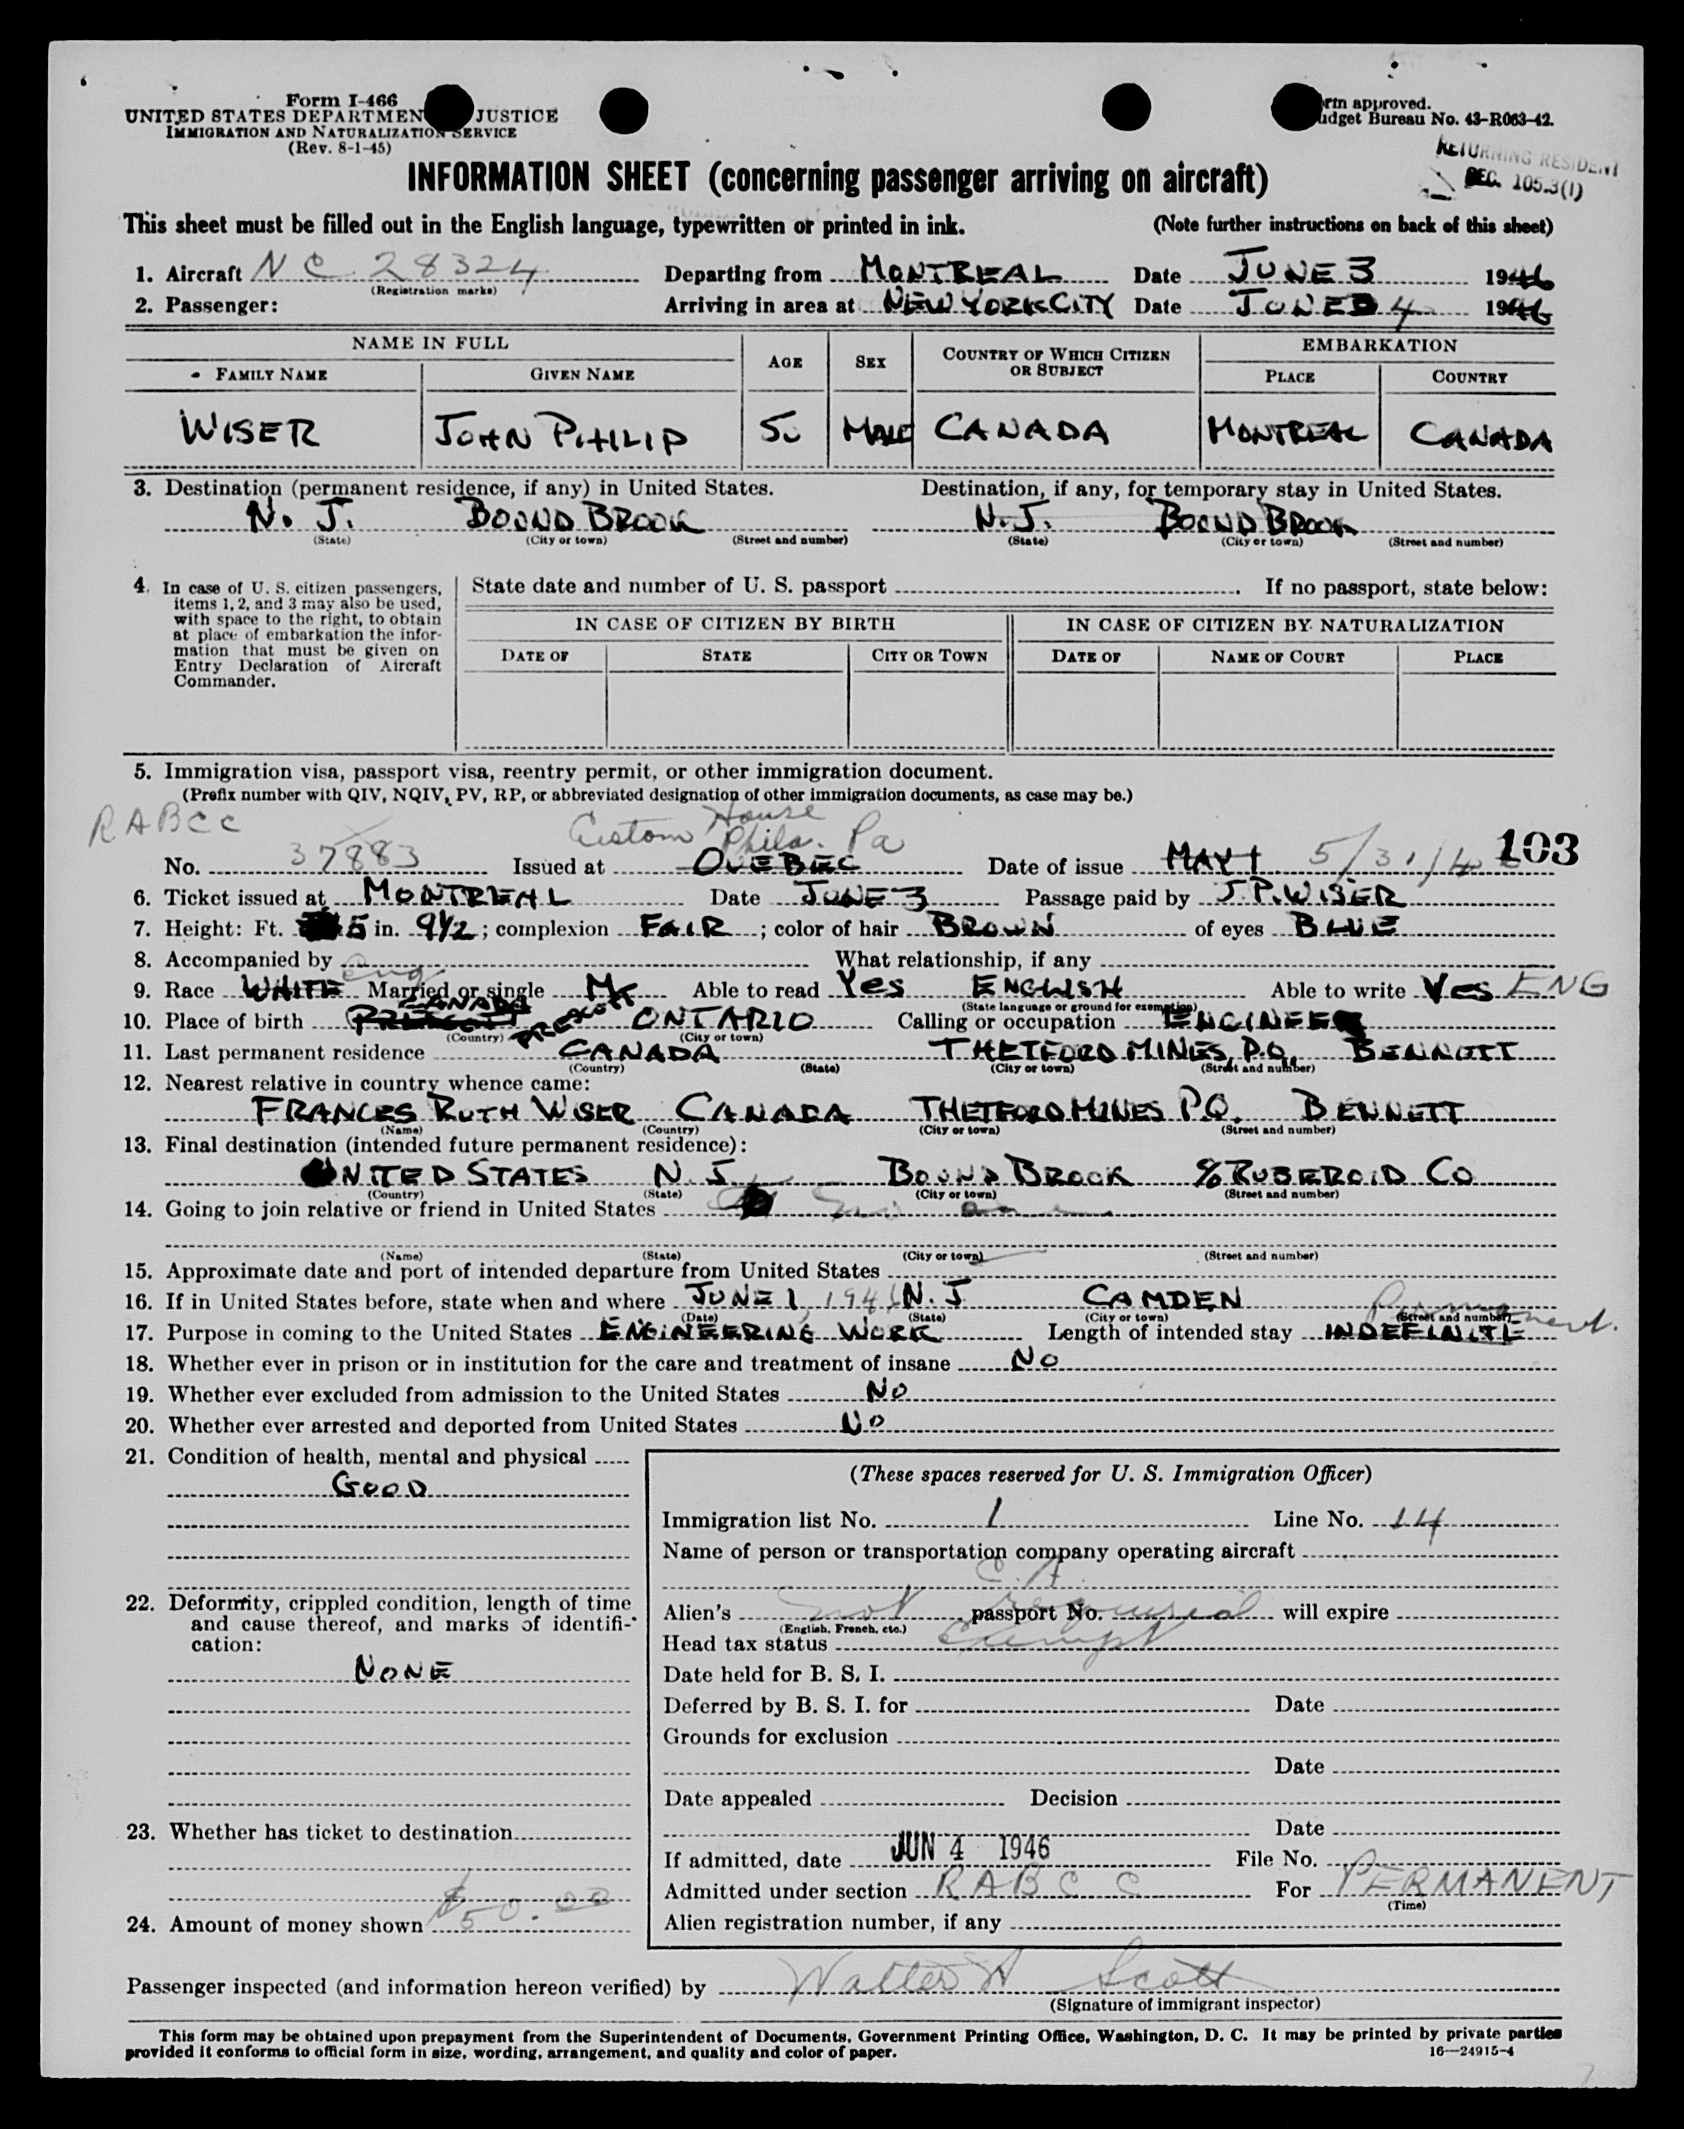 Form I-466
UNITED STATES DEPARTMEN JUSTICE
IMMIGRATION AND NATURALIZATION SERVICE
(Rev. 8-1-45)
rm approved.
udget Bureau No. 43-R063-42.
RETURNING RESIDENT
SEC. 105.3(1)
INFORMATION SHEET (concerning passenger arriving on aircraft)
This sheet must be filled out in the English language, typewritten or printed in ink. (Note further instructions on back of this sheet)
1. Aircraft NC 28324 Departing from MONTREAL Date JUNE 3 1946
(Registration marks)
2. Passenger: Arriving in area at NEW YORK CITY Date JUNE 4 1946
NAME IN FULL AGE SEX COUNTRY OF WHICH CITIZEN OR SUBJECT EMBARKATION
FAMILY NAME GIVEN NAME PLACE COUNTRY
WISER JOHN PHILIP MALE CANADA MONTREAL CANADA
3. Destination (permanent residence, if any) in United States. Destination, if any, for temporary stay in United States.
N. J. BOUND BROOK N.J. BOUND BROOK
(State) (City or town) (Street and number) (State) (City or town) (Street and number)
4. In case of U. S. citizen passengers, items 1, 2, and 3 may also be used, with space to the right, to obtain at place of embarkation the information that must be given on Entry Declaration of Aircraft Commander.
State date and number of U. S. passport . If no passport, state below:
IN CASE OF CITIZEN BY BIRTH IN CASE OF CITIZEN BY NATURALIZATION
DATE OF STATE CITY OR TOWN DATE OF NAME OF COURT PLACE
5. Immigration visa, passport visa, reentry permit, or other immigration document.
(Prefix number with QIV, NQIV, PV, RP, or abbreviated designation of other immigration documents, as case may be.)
RABCC Custom House Phila. Pa
No. 37883 Issued at QUEBEC Date of issue MAY 1 5/31/4 103
6. Ticket issued at MONTREAL Date JUNE 3 Passage paid by J.P. WISER
7. Height: Ft. 5 in. 9 1/2; complexion FAIR; color of hair BROWN of eyes BLUE
8. Accompanied by What relationship, if any
Eng
9. Race WHITE Married or single M Able to read YES ENGLISH Able to write YES ENG
(State language or ground for exemption)
10. Place of birth CANADA PRESCOTT ONTARIO Calling or occupation ENGINEER
(Country) (City or town)
11. Last permanent residence CANADA THETFORD MINES, P.Q. BENNETT
(Country) (State) (City or town) (Street and number)
12. Nearest relative in country whence came:
FRANCES RUTH WISER CANADA THETFORD MINES P.Q. BENNETT
(Name) (Country) (City or town) (Street and number)
13. Final destination (intended future permanent residence):
UNITED STATES N. J. BOUND BROOK % RUBEROID CO
(Country) (State) (City or town) (Street and number)
14. Going to join relative or friend in United States
(Name) (State) (City or town) (Street and number)
15. Approximate date and port of intended departure from United States
16. If in United States before, state when and where JUNE 1, 194 N. J. CAMDEN
(Date) (State) (City or town) (Street and number)
Permanent.
17. Purpose in coming to the United States ENGINEERING WORK Length of intended stay INDEFINITE
18. Whether ever in prison or in institution for the care and treatment of insane NO
19. Whether ever excluded from admission to the United States NO
20. Whether ever arrested and deported from United States NO
21. Condition of health, mental and physical
GOOD
22. Deformity, crippled condition, length of time and cause thereof, and marks of identification:
NONE
23. Whether has ticket to destination
24. Amount of money shown $50.00
(These spaces reserved for U. S. Immigration Officer)
Immigration list No. 1 Line No. 14
Name of person or transportation company operating aircraft
C. A.
Alien's not passport No. required will expire
(English, French, etc.)
Head tax status Exempt
Date held for B. S. I.
Deferred by B. S. I. for Date
Grounds for exclusion
Date
Date appealed Decision
Date
If admitted, date JUN 4 1946 File No.
Admitted under section RABCC For PERMANENT
(Time)
Alien registration number, if any
Passenger inspected (and information hereon verified) by Walter A Scott
(Signature of immigrant inspector)
This form may be obtained upon prepayment from the Superintendent of Documents, Government Printing Office, Washington, D. C. It may be printed by private parties
provided it conforms to official form in size, wording, arrangement, and quality and color of paper. 16—24915-4